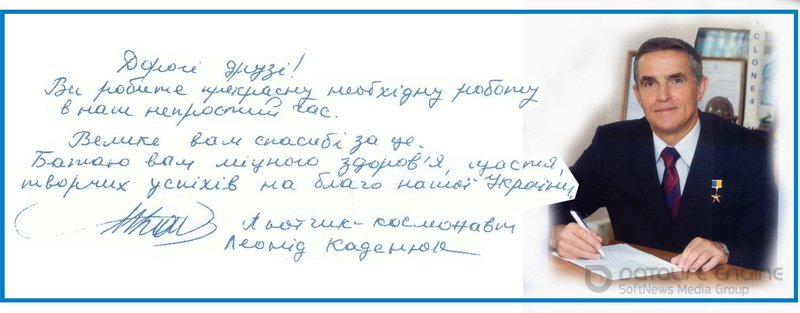 Дорогі друзі!
Ви робите прекрасну необхідну роботу
в наш непростий час.
Велике вам спасибі за це.
Бажаю вам міцного здоров'я, щастя,
творчих успіхів на благо нашої України.
Льотчик-космонавт
Леонід Каденюк
CYCLONE4
DATALIFE ENGINE
SoftNews Media Group